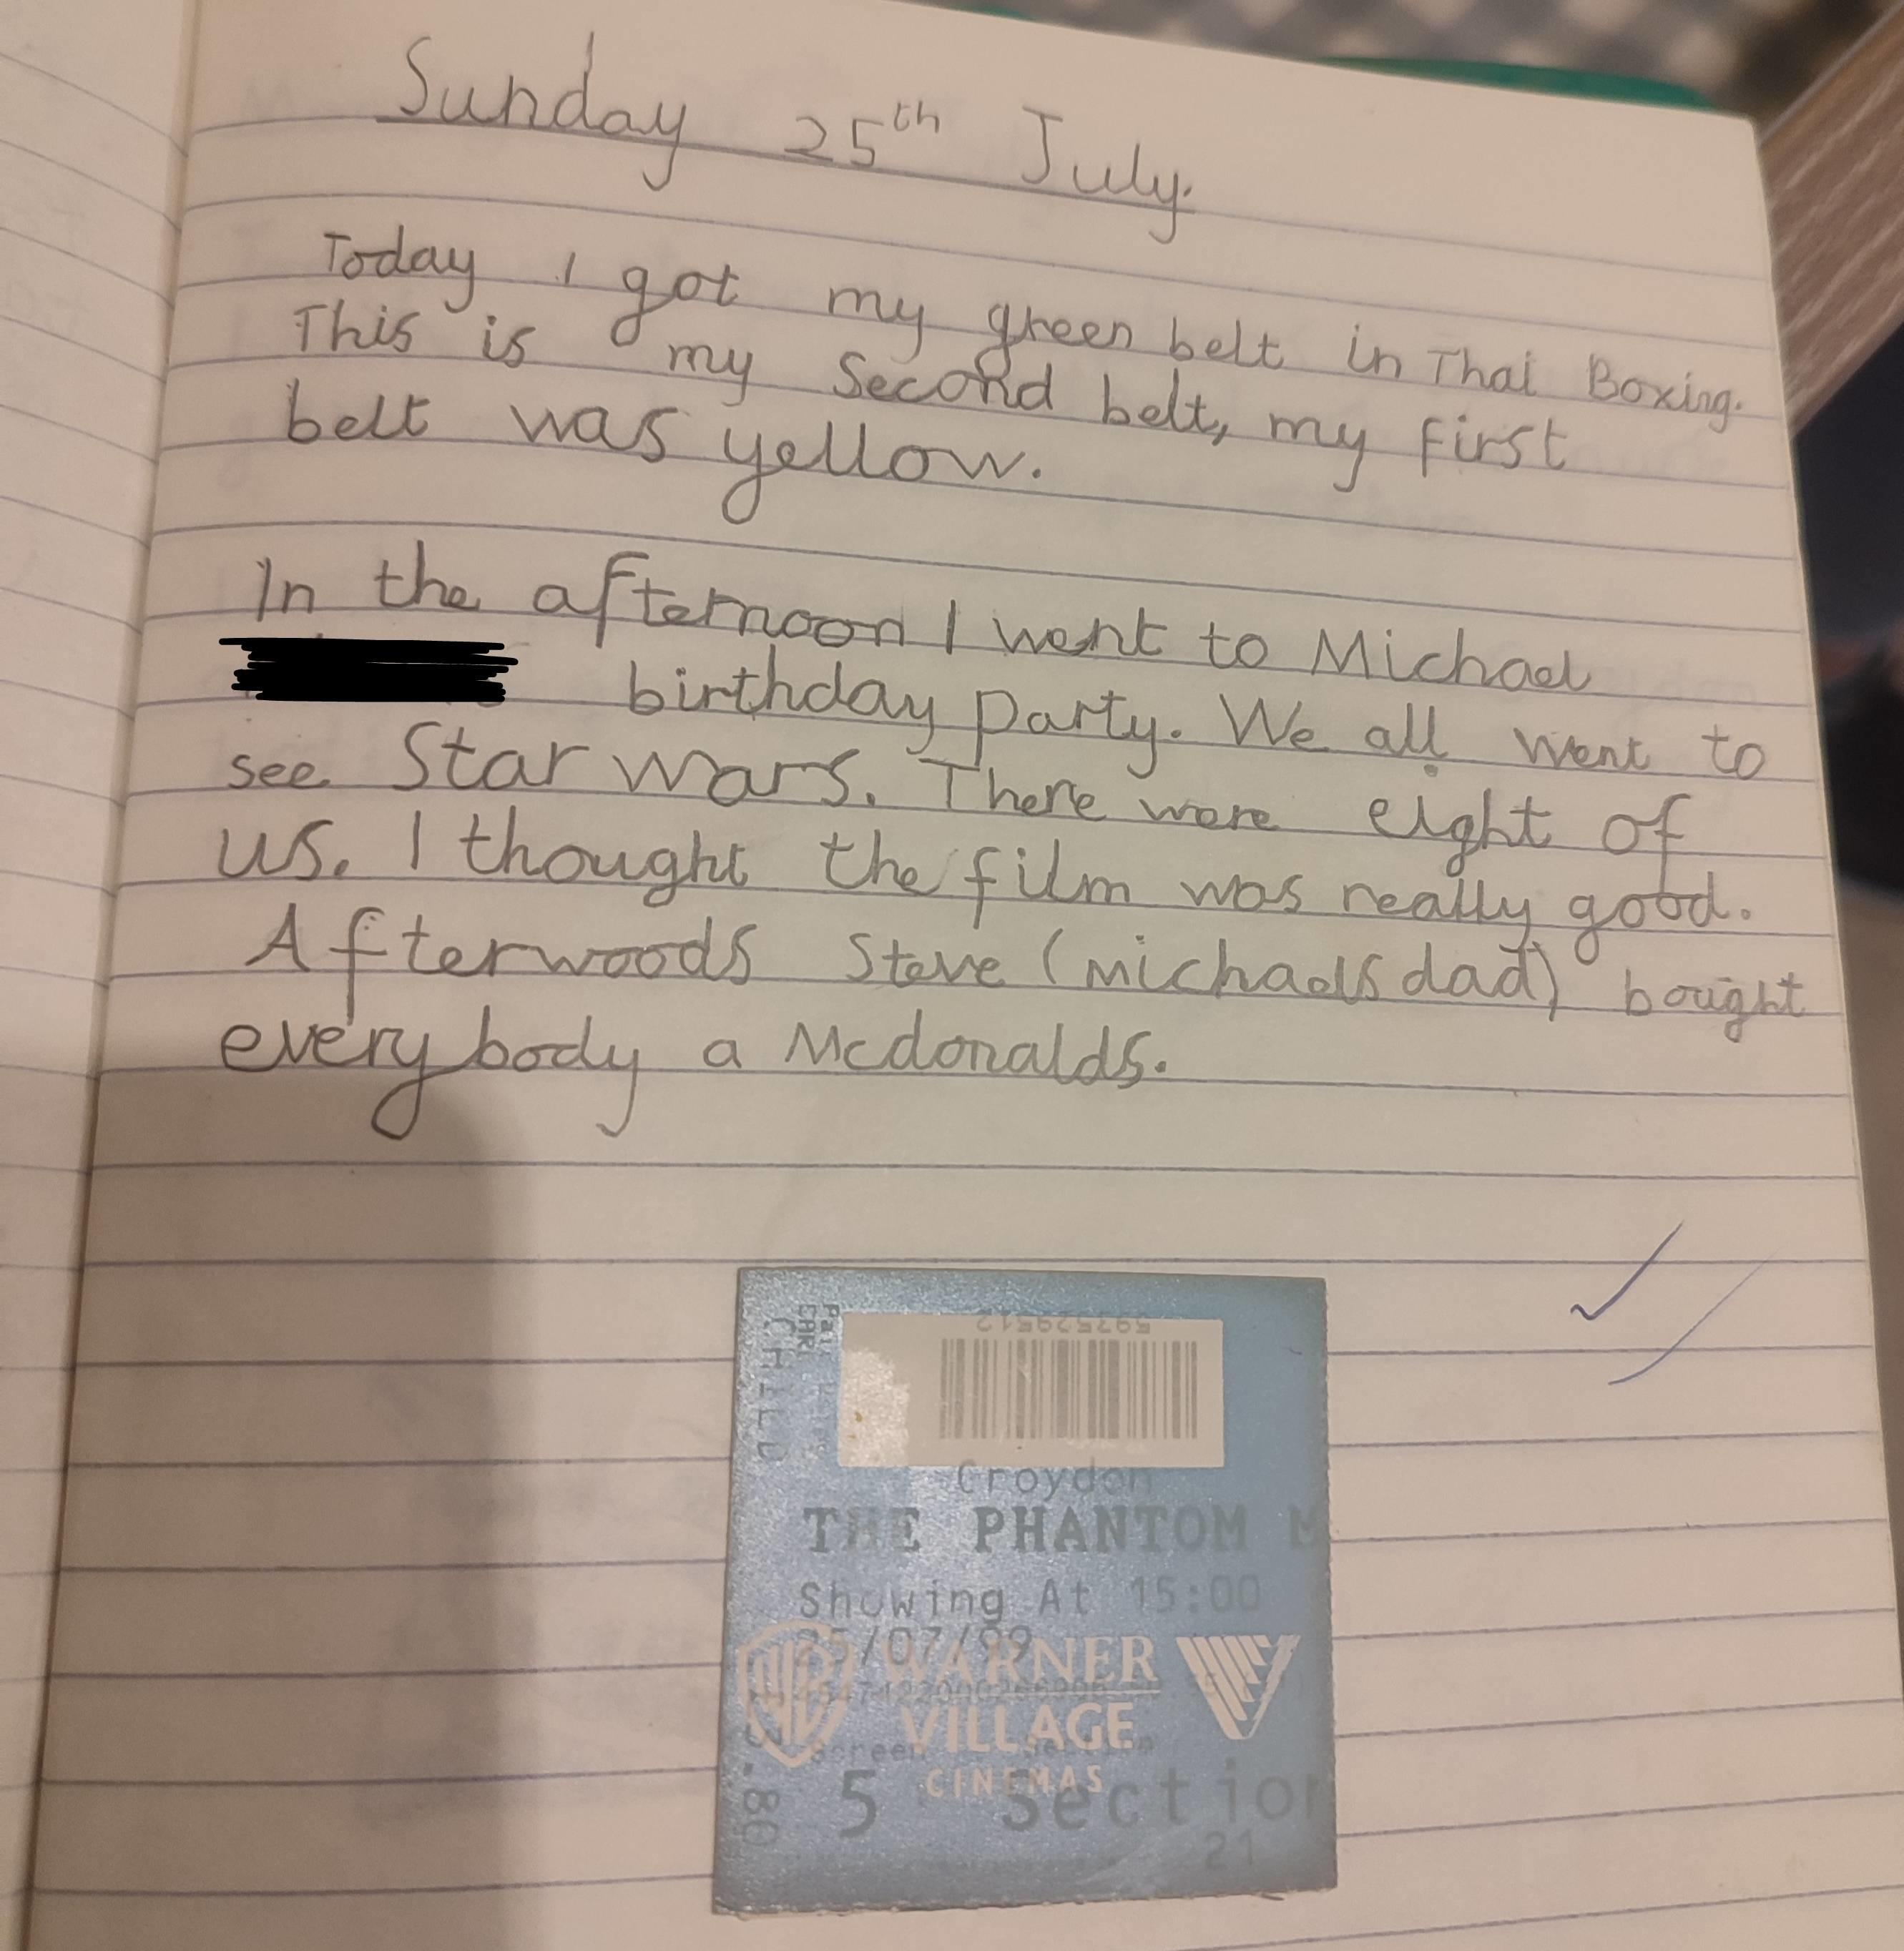 Sunday 25th July.
Today I got my green belt in Thai Boxing.
This is my second belt, my first
belt was yellow.
In the afternoon I went to Michael
birthday party. We all went to
see Star wars. There were eight of
us. I thought the film was really good.
Afterwoods Steve (michaels dad) bought
everybody a Mcdonalds.
593529512
CHILD
Croydon
THE PHANTOM M
Showing At 15:00
25/07/99
WB WARNER
VILLAGE
CINEMAS
Screen
5 Section
21
.80